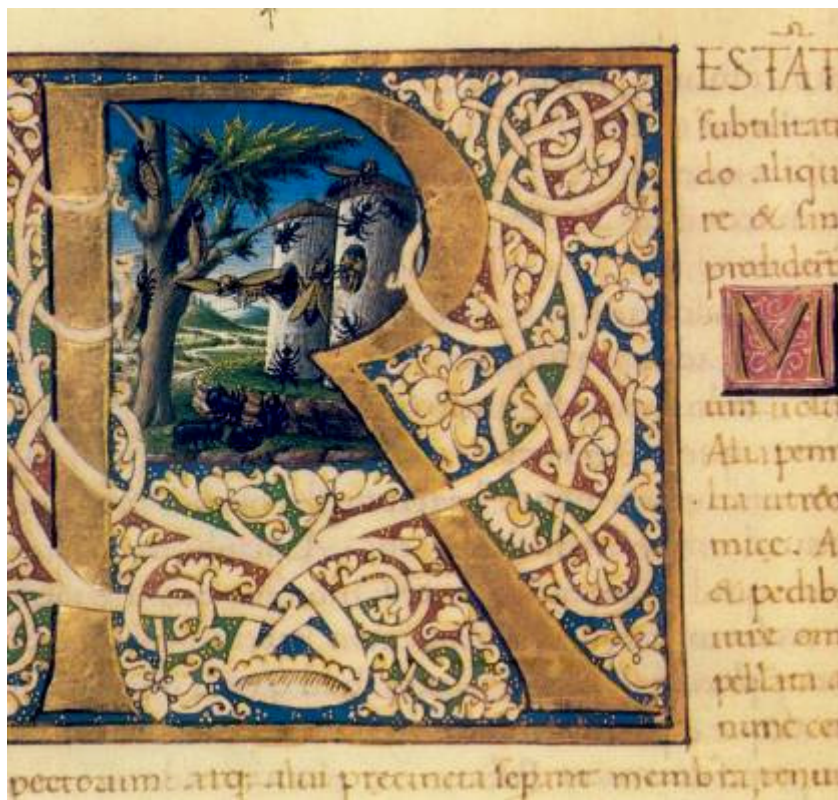 R ESTAT
subtilitat
do aliqu
re & sin
prodider
M
Alia penn
lia utro
micę. A
& pedib
iure om
pellata
nunc ce
pectorum atq; alui precincta sepant membra, tenu